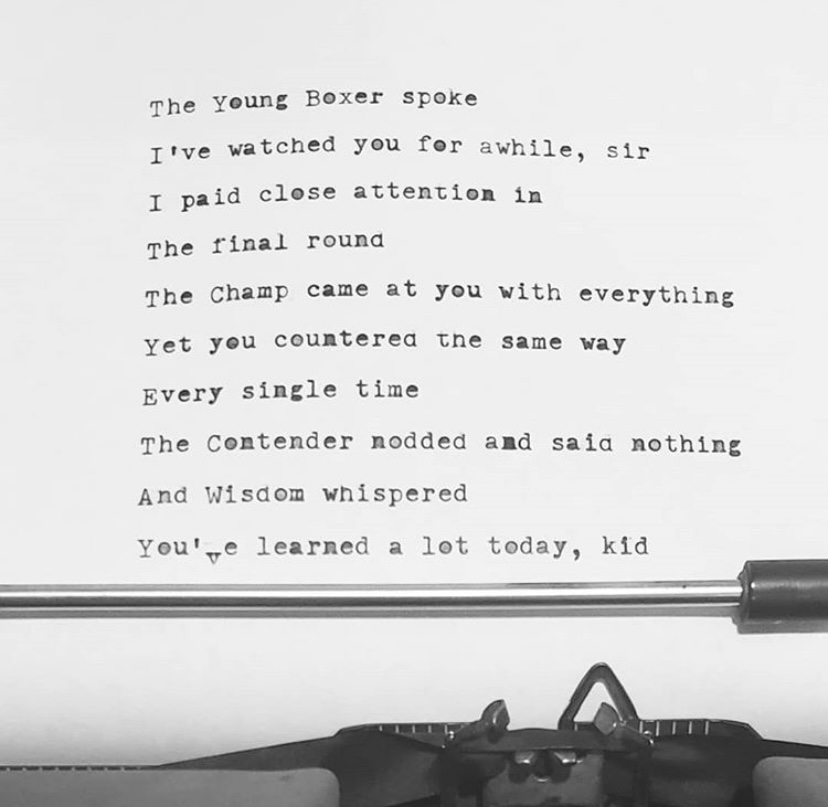 The Young Boxer spoke
I've watched you for awhile, sir
I paid close attention in
The final round
The Champ came at you with everything
Yet you countered the same way
Every single time
The Contender nodded and said nothing
And Wisdom whispered
You've learned a lot today, kid